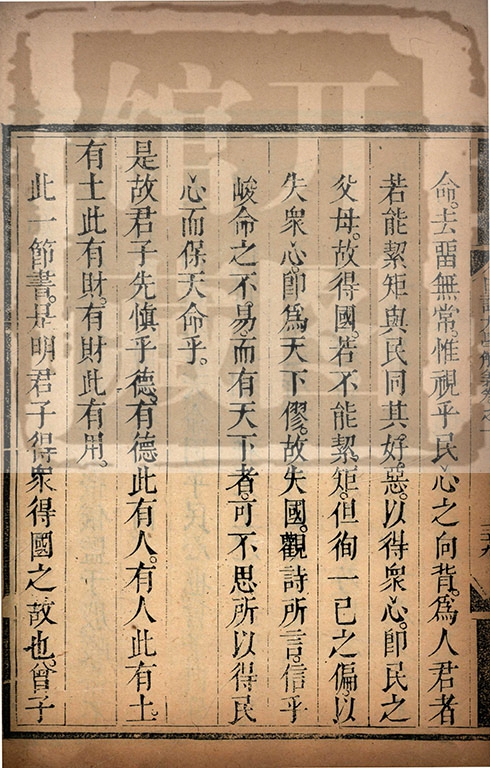 命。去畱無常。惟視乎民心之向背。為人君者
若能絜矩與民同其好惡。以得衆心。卽民之
父母。故得國。若不能絜矩。但徇一己之偏。以
失衆心。卽為天下僇。故失國。觀詩所言。信乎
峻命之不易。而有天下者。可不思所以得民
心而保天命乎。
是故君子先慎乎德。有德此有人。有人此有土。
有土此有財。有財此有用。
此一節書。是明君子得衆得國之故也。曾子